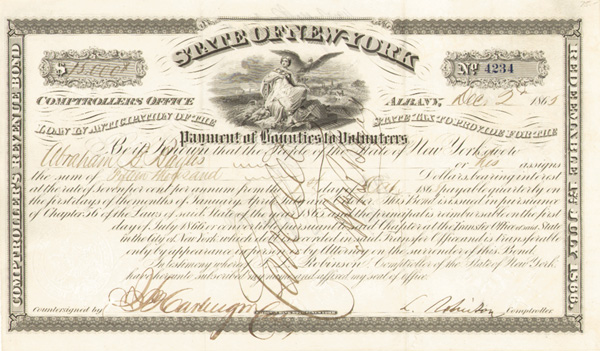 STATE OF NEW-YORK
$ 15,000
No 4234
COMPTROLLERS OFFICE
ALBANY, Dec 2d 1865
LOAN IN ANTICIPATION OF THE
STATE TAX TO PROVIDE FOR THE
Payment of Bounties to Volunteers
Be it Known that the People of the State of New York, owe to
Abraham or his assigns
the sum of Fifteen thousand Dollars, bearing interest
at the rate of seven per cent per annum from the day of 186 payable quarterly on
the first days of the months of January, April This Bond is issued in pursuance
of Chapter 56 of the Laws of said State of the 1865 and the principal is reimbursable on the first
day of July 1866 or convertible Chapter at the Transfer Office of said State
in the City of New York, which recorded in said Transfer Office and is transferable
only by appearance or by Attorney on the surrender of this Bond.
In testimony whereof Robinson Comptroller of the State of New York,
have hereunto subscribed my name and affixed my seal of office.
Countersigned by
L. Robinson Comptroller
COMPTROLLER'S REVENUE BOND
REDEEMABLE 1ST JULY 1866.